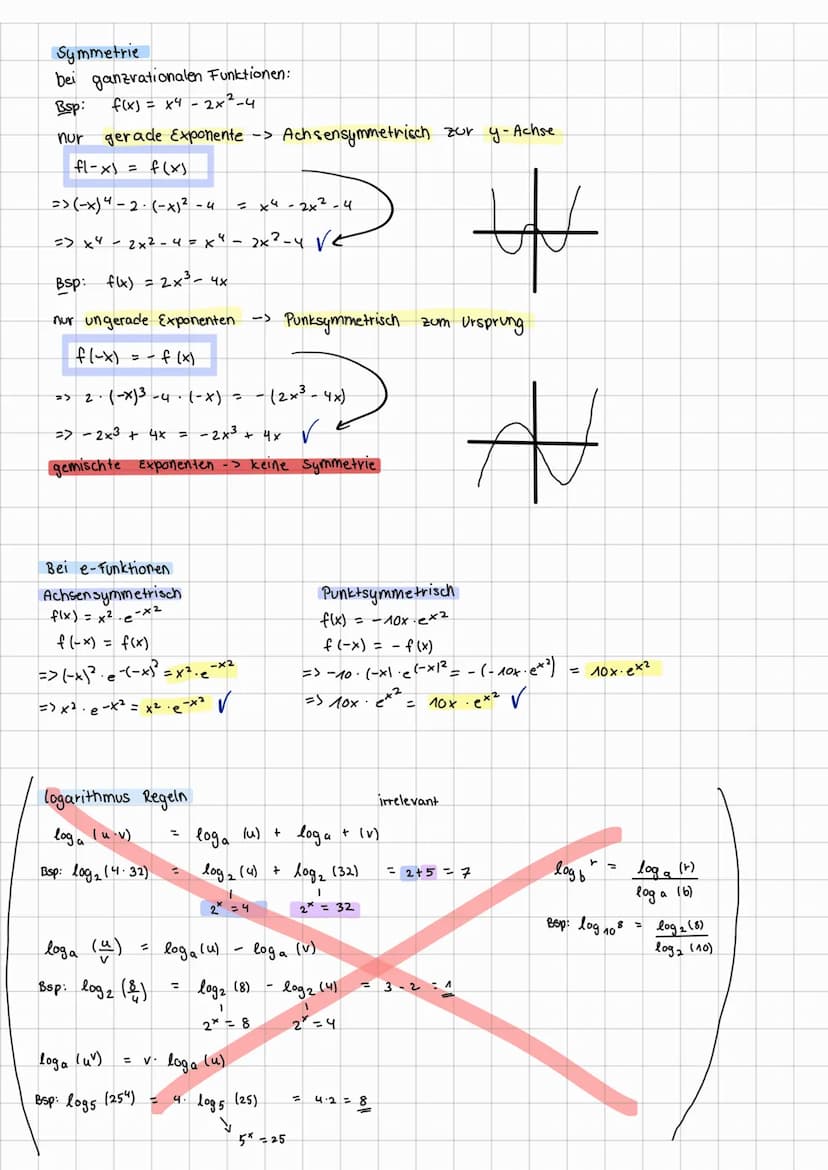 Symmetrie
bei ganzrationalen Funktionen:
Bsp: f(x) = x⁴ - 2x² - 4
nur gerade Exponente -> Achsensymmetrisch zur y-Achse
f(-x) = f(x)
=> (-x)⁴ - 2 · (-x)² - 4 = x⁴ - 2x² - 4
=> x⁴ - 2x² - 4 = x⁴ - 2x² - 4 ✓
Bsp: f(x) = 2x³ - 4x
nur ungerade Exponenten -> Punksymmetrisch zum Ursprung
f(-x) = - f(x)
=> 2 · (-x)³ - 4 · (-x) = - (2x³ - 4x)
=> - 2x³ + 4x = - 2x³ + 4x ✓
gemischte Exponenten -> keine Symmetrie
Bei e-Funktionen
Achsensymmetrisch
f(x) = x² · e^(-x²)
f(-x) = f(x)
=> (-x)² · e^(-(-x)²) = x² · e^(-x²)
=> x² · e^(-x²) = x² · e^(-x²) ✓
Punktsymmetrisch
f(x) = -10x · e^(x²)
f(-x) = - f(x)
=> -10 · (-x) · e^((-x)²) = - (-10x · e^(x²)) = 10x · e^(x²)
=> 10x · e^(x²) = 10x · e^(x²) ✓
Logarithmus Regeln irrelevant
logₐ (u·v) = logₐ (u) + logₐ + (v)
Bsp: log₂ (4·32) = log₂ (4) + log₂ (32) = 2+5 = 7
2ˣ = 4 2ˣ = 32
logₐ (u/v) = logₐ (u) - logₐ (v)
Bsp: log₂ (8/4) = log₂ (8) - log₂ (4) = 3 - 2 = 1
2ˣ = 8 2ˣ = 4
logₐ (uᵛ) = v · logₐ (u)
Bsp: log₅ (25⁴) = 4 · log₅ (25) = 4·2 = 8
5ˣ = 25
log_b r = logₐ (r) / logₐ (b)
Bsp: log₁₀ 8 = log₂ (8) / log₂ (10)